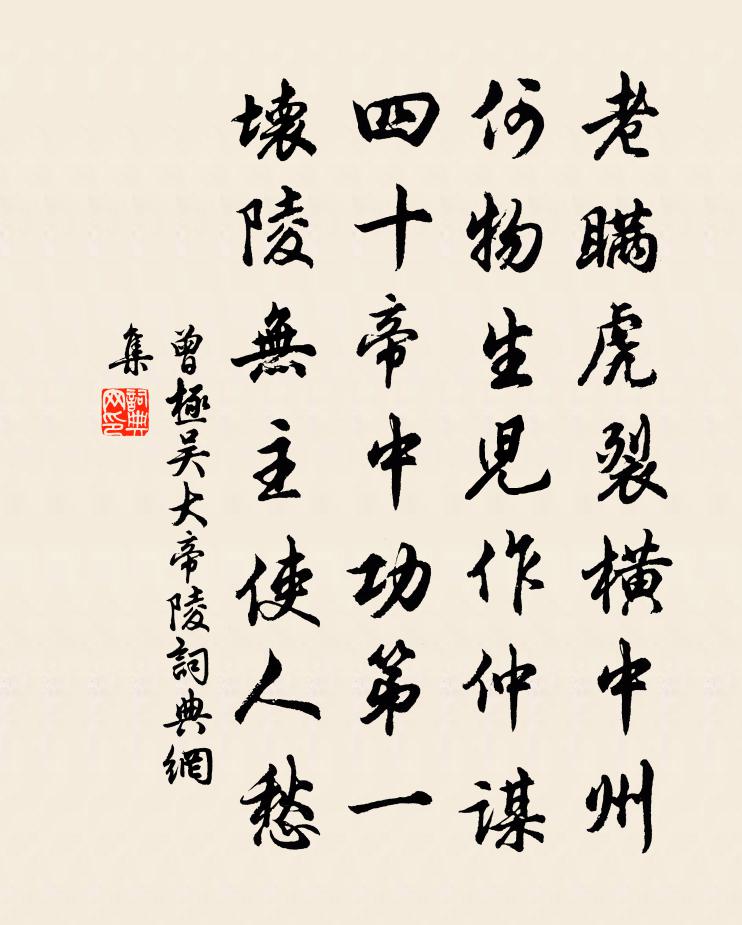 老瞞虎裂橫中州
何物生兒作仲謀
四十帝中功第一
壞陵無主使人愁
曾極吳大帝陵詞典網
集
詞典
网印